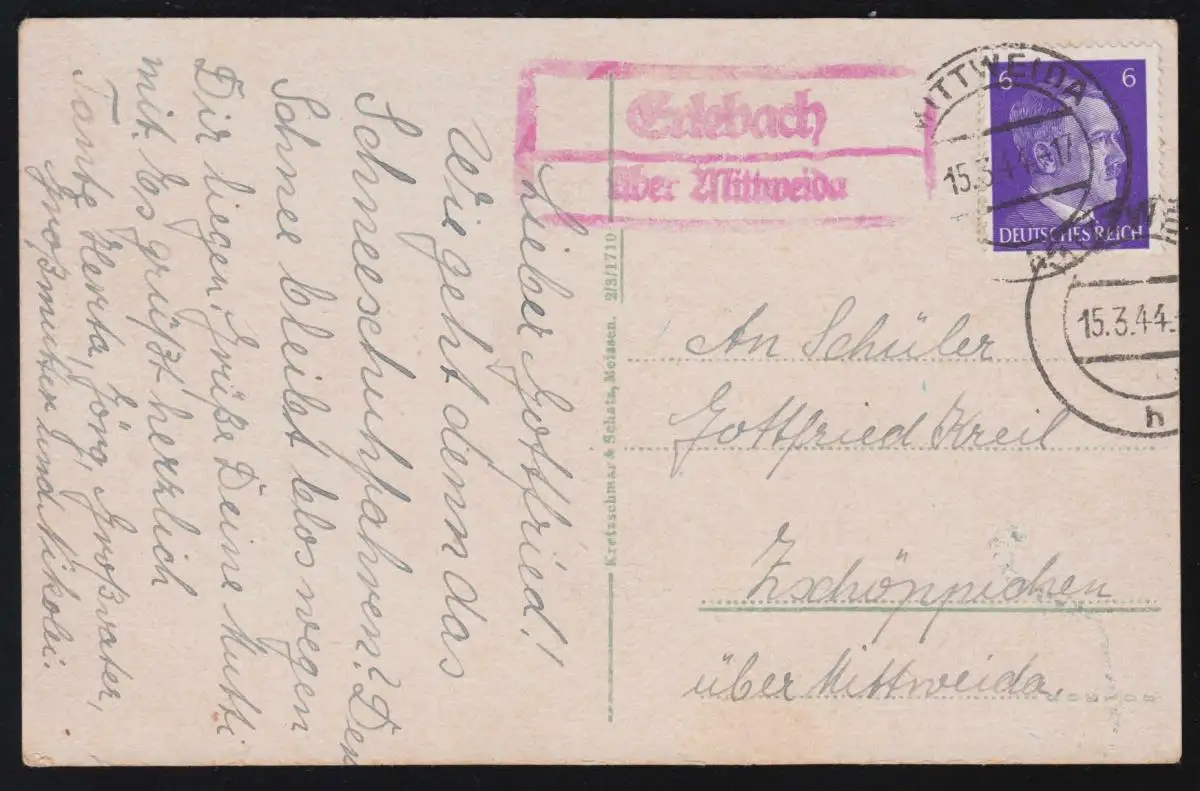 Lieber Gottfried!
Wie geht denn das
Schneeschuhfahren? Der
Schnee bleibt blos wegen
Dir liegen. Grüße Deine Mutti
mit. Es grüßt herzlich
Tante Herta, Jörg, Großvater,
Großmutter und Nikolei.
Kretzschmar & Schatz, Meissen. 2/3/1710
Erlebach
über Mittweida
MITTWEIDA
15.3.44.-17
6 6
DEUTSCHES REICH
15.3.44.-1
h
An Schüler
Gottfried Kreil
Zschöppichen
über Mittweida.